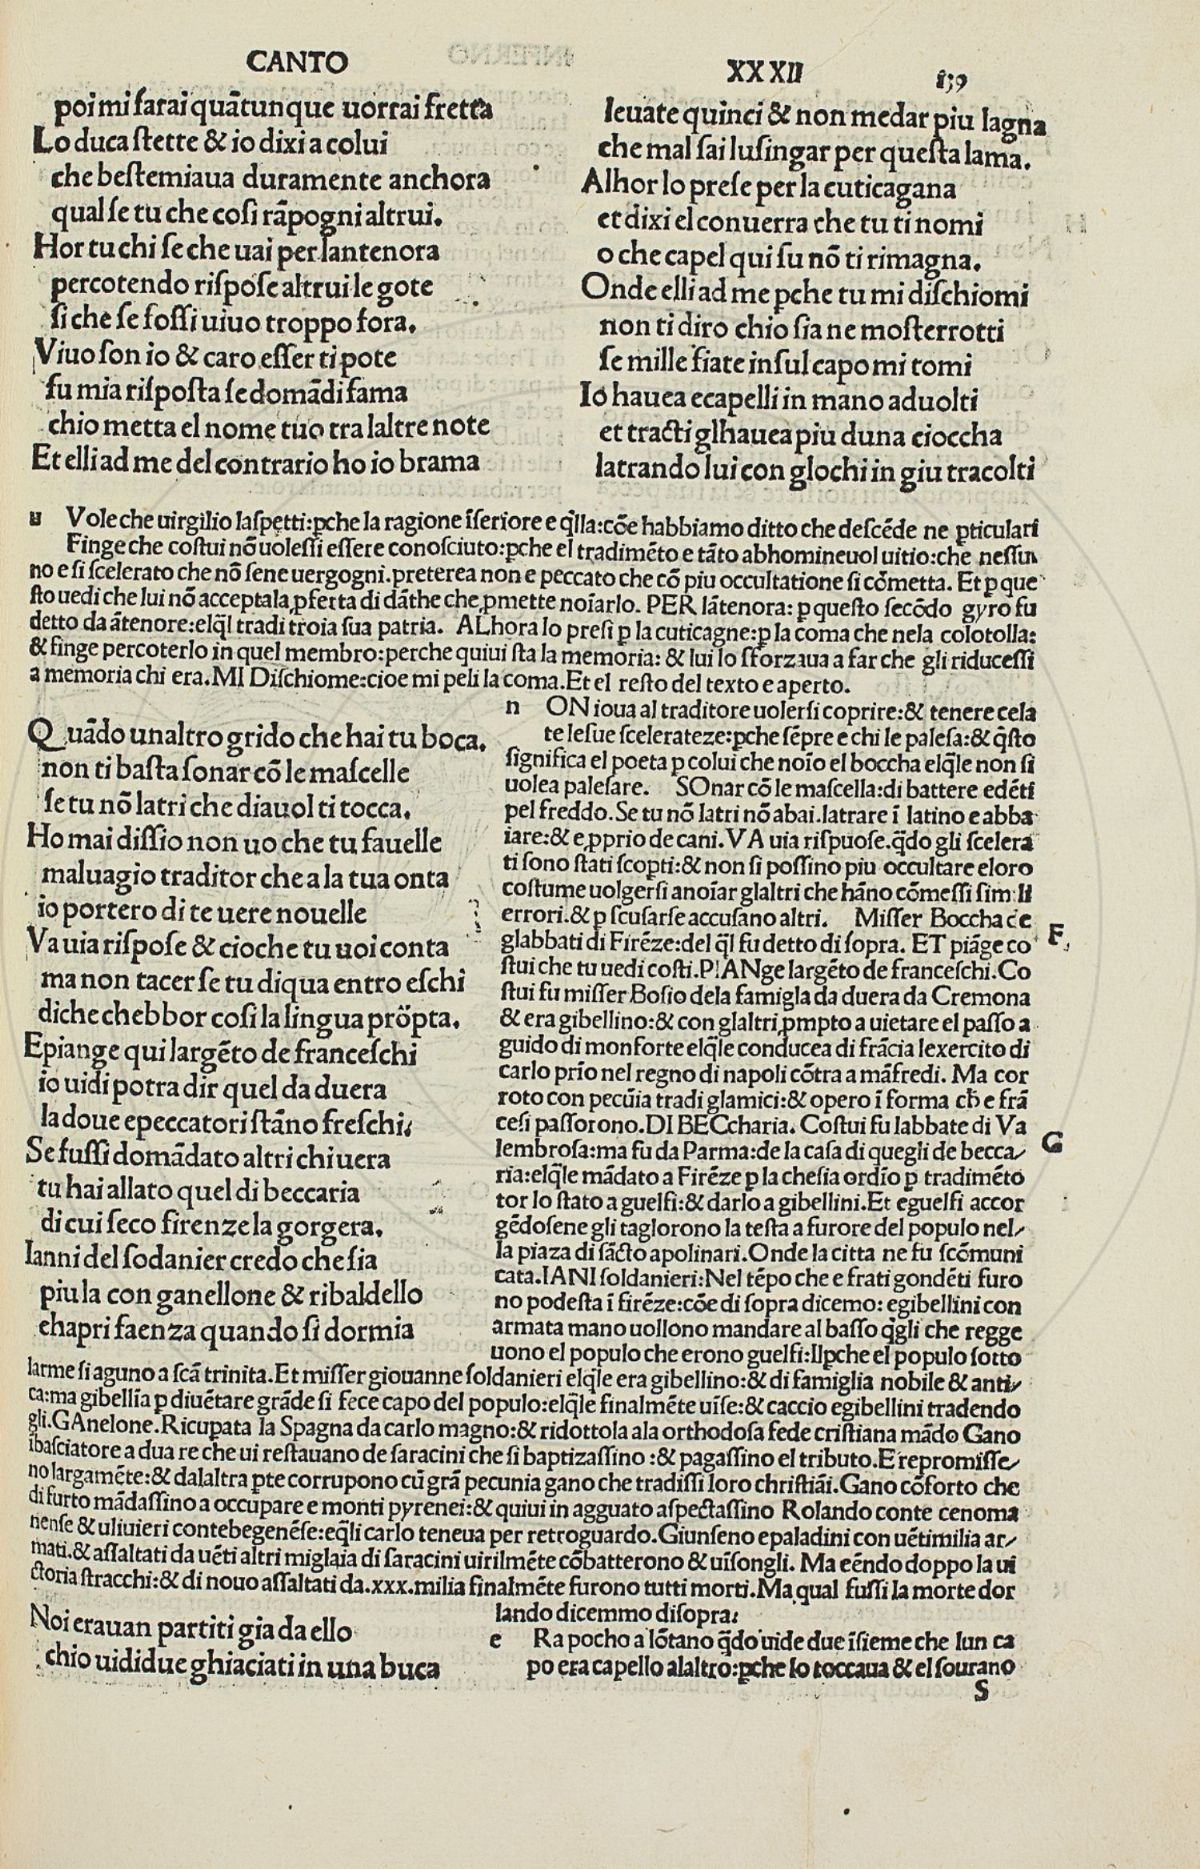 CANTO XXXII 139
poi mi farai quãtunque uorrai fretta
Lo duca ſtette & io dixi a colui
che beſtemiaua duramente anchora
qual ſe tu che coſi rãpogni altrui.
Hor tu chi ſe che uai per lantenora
percotendo riſpoſe altrui le gote
ſi che ſe foſſi uiuo troppo fora.
Viuo ſon io & caro eſſer ti pote
fu mia riſpoſta ſe domãdi fama
chio metta el nome tuo tra laltre note
Et elli ad me del contrario ho io brama
leuate quinci & non me dar piu lagna
che mal ſai luſingar per queſta lama.
Alhor lo preſe per la cuticagna
et dixi el conuerra che tu ti nomi
o che capel qui ſu nõ ti rimagna.
Onde elli ad me pche tu mi diſchiomi
non ti diro chio ſia ne moſterrotti
ſe mille fiate in ſul capo mi tomi
Io hauea ecapelli in mano aduolti
et tracti glhauea piu duna cioccha
latrando lui con glochi in giu tracolti
u Vole che uirgilio laſpetti:pche la ragione ĩferiore e qlla:cõe habbiamo ditto che deſcẽde ne pticulari
Finge che coſtui nõ uoleſſi eſſere conoſciuto:pche el tradimẽto e tãto abhomineuol uitio:che neſſu
no e ſi ſcelerato che nõ ſene uergogni.preterea non e peccato che cõ piu occultatione ſi cõmetta. Et p que
ſto uedi che lui nõ accepta la pferta di dãthe che pmette noĩarlo. PER lãtenora: p queſto ſecõdo gyro fu
detto da ãtenore:elql tradi troia ſua patria. ALhora lo preſi p la cuticagne:p la coma che nela colotolla:
& finge percoterlo in quel membro:perche quiui ſta la memoria: & lui lo ſforzaua a far che gli riduceſſi
a memoria chi era.MI Diſchiome:cioe mi peli la coma.Et el reſto del texto e aperto.
Quãdo unaltro grido che hai tu boca.
non ti baſta ſonar cõ le maſcelle
ſe tu nõ latri che diauol ti tocca.
Ho mai diſſio non uo che tu fauelle
maluagio traditor che a la tua onta
io portero di te uere nouelle
Va uia riſpoſe & cio che tu uoi conta
ma non tacer ſe tu di qua entro eſchi
di che chebbor coſi la lingua prõpta.
E piange qui largẽto de franceſchi
io uidi potra dir quel da duera
la doue epeccatori ſtãno freſchi.
Se fuſſi domãdato altri chi uera
tu hai allato quel di beccaria
di cui ſeco firenze la gorgera.
Ianni del ſodanier credo che ſia
piu la con ganellone & ribaldello
chapri faenza quando ſi dormia
n ON ioua al traditore uolerſi coprire:& tenere cela
te leſue ſcelerateze:pche ſẽpre e chi le paleſa:& qſto
ſignifica el poeta p colui che noĩo el boccha elqle non ſi
uolea paleſare. SOnar cõ le maſcella:di battere edẽti
pel freddo.Se tu nõ latri nõ abai.latrare ĩ latino e abba
iare:& e pprio de cani.VA uia riſpuoſe.qdo gli ſcelera
ti ſono ſtati ſcopti:& non ſi poſſino piu occultare eloro
coſtume uolgerſi anoĩar glaltri che hãno cõmeſſi ſimili
errori.& p ſcuſarſe accuſano altri. Miſſer Boccha de
glabbati di Firẽze:del ql fu detto di ſopra. ET piãge co F
ſtui che tu uedi coſti.PIANge largẽto de franceſchi.Co
ſtui fu miſſer Boſio dela famigla da duera da Cremona
& era gibellino:& con glaltri pmpto a uietare el paſſo a
guido di monforte elqle conducea di frãcia lexercito di
carlo prĩo nel regno di napoli cõtra a mãfredi. Ma cor
roto con pecũia tradi glamici:& opero ĩ forma ch e frã
ceſi paſſorono.DI BECcharia. Coſtui fu labbate di Va
lembroſa:ma fu da Parma:de la caſa di quegli de becca G
ria:elqle mãdato a Firẽze p la cheſia ordĩo p tradimẽto
tor lo ſtato a guelfi:& darlo a gibellini.Et eguelfi accor
gẽdoſene gli taglorono la teſta a furore del populo nel
la piaza di ſãcto apolinari.Onde la citta ne fu ſcõmuni
cata.IANI ſoldanieri:Nel tẽpo che e frati gondẽti furo
no podeſta ĩ firẽze:cõe di ſopra dicemo: egibellini con
armata mano uollono mandare al baſſo qgli che regge
uono el populo che erono guelfi:Ilpche el populo ſotto
larme ſi aguno a ſcã trinita.Et miſſer giouanne ſoldanieri elqle era gibellino:& di famiglia nobile & anti
ca:ma gibellĩa p diuẽtare grãde ſi fece capo del populo:elqle finalmẽte uĩſe:& caccio egibellini tradendo
gli.GAnelone.Ricupata la Spagna da carlo magno:& ridottola ala orthodoſa fede criſtiana mãdo Gano
ĩbaſciatore a dua re che ui reſtauano de ſaracini che ſi baptizaſſino :& pagaſſino el tributo.E repromiſſe
no largamẽte:& dalaltra pte corrupono cũ grã pecunia gano che tradiſſi loro chriſtiãi.Gano cõforto che
di furto mãdaſſino a occupare e monti pyrenei:& quiui in agguato aſpectaſſino Rolando conte cenoma
nenſe & uliuieri contebegenẽſe:eqli carlo teneua per retroguardo.Giunſeno epaladini con uẽtimilia ar
mati.& aſſaltati da uẽti altri miglaia di ſaracini uirilmẽte cõbatterono & uĩſongli. Ma eẽndo doppo la ui
ctoria ſtracchi:& di nouo aſſaltati da.xxx.milia finalmẽte furono tutti morti.Ma qual fuſſi la morte dor
lando dicemmo diſopra.
Noi erauan partiti gia da ello
chio uidi due ghiaciati in una buca
e Ra pocho a lõtano qdo uide due ĩſieme che lun ca
po era capello alaltro:pche lo toccaua & el ſourano
S